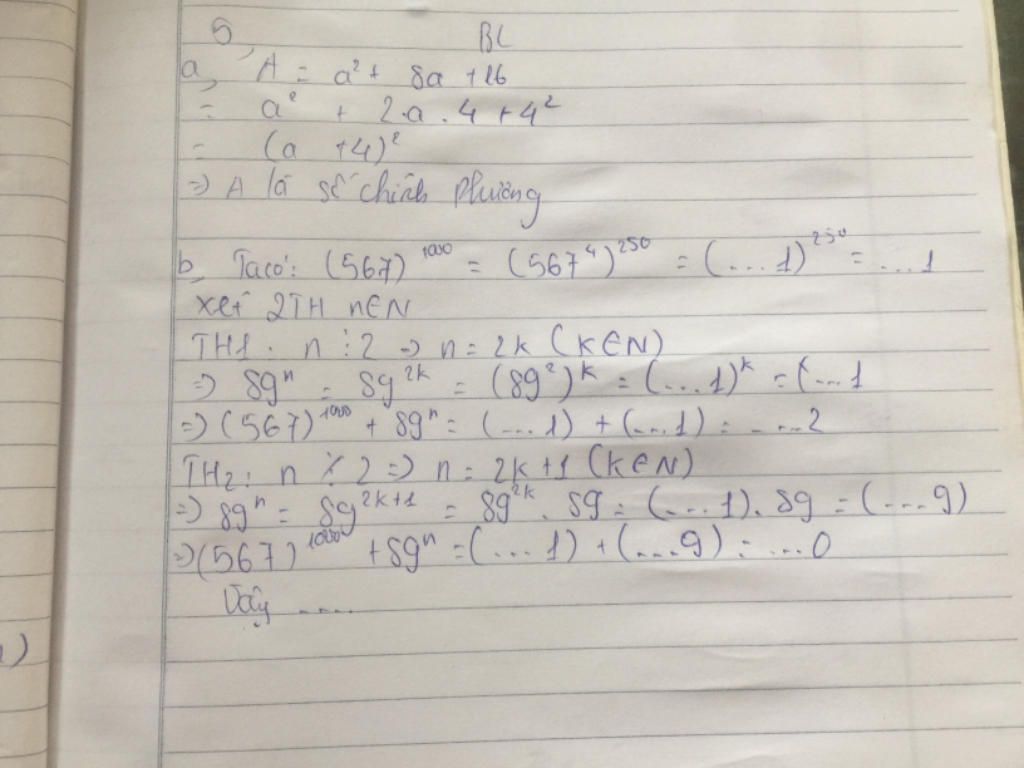 5, BL
a, A = a² + 8a + 16
= a² + 2.a.4 + 4²
= (a + 4)²
=> A là số chính phương
b, Ta có: (567)¹⁰⁰⁰ = (567⁴)²⁵⁰ = (...1)²⁵⁰ = ...1
xét 2TH n∈N
TH1: n ⋮ 2 => n = 2k (k∈N)
=> 89ⁿ = 89²ᵏ = (89²)ᵏ = (...1)ᵏ = (...1
=> (567)¹⁰⁰⁰ + 89ⁿ = (...1) + (...1) = ....2
TH2: n ⋮̸ 2 => n = 2k+1 (k∈N)
=> 89ⁿ = 89²ᵏ⁺¹ = 89²ᵏ . 89 = (...1). 89 = (...9)
=> (567)¹⁰⁰⁰ + 89ⁿ = (...1) + (...9) = ...0
Vậy ....
)